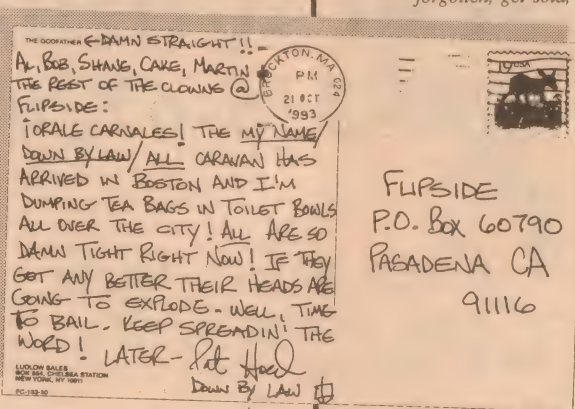 forgotten, get sold,
THE GODFATHER ← DAMN STRAIGHT!!
AL, BOB, SHANE, CAKE, MARTIN &
THE REST OF THE CLOWNS @
FLIPSIDE:
¡ORALE CARNALES! THE MY NAME/
DOWN BY LAW/ALL CARAVAN HAS
ARRIVED IN BOSTON AND I'M
DUMPING TEA BAGS IN TOILET BOWLS
ALL OVER THE CITY! ALL ARE SO
DAMN TIGHT RIGHT NOW! IF THEY
GET ANY BETTER THEIR HEADS ARE
GOING TO EXPLODE - WELL, TIME
TO BAIL. KEEP SPREADIN' THE
WORD! LATER - Pat Hoed
DOWN BY LAW
LUDLOW SALES
BOX 554, CHELSEA STATION
NEW YORK, NY 10011
PC-193-30
BROCKTON, MA 024
PM
21 OCT
1993
19 USA
FLIPSIDE
P.O. BOX 60790
PASADENA CA
91116